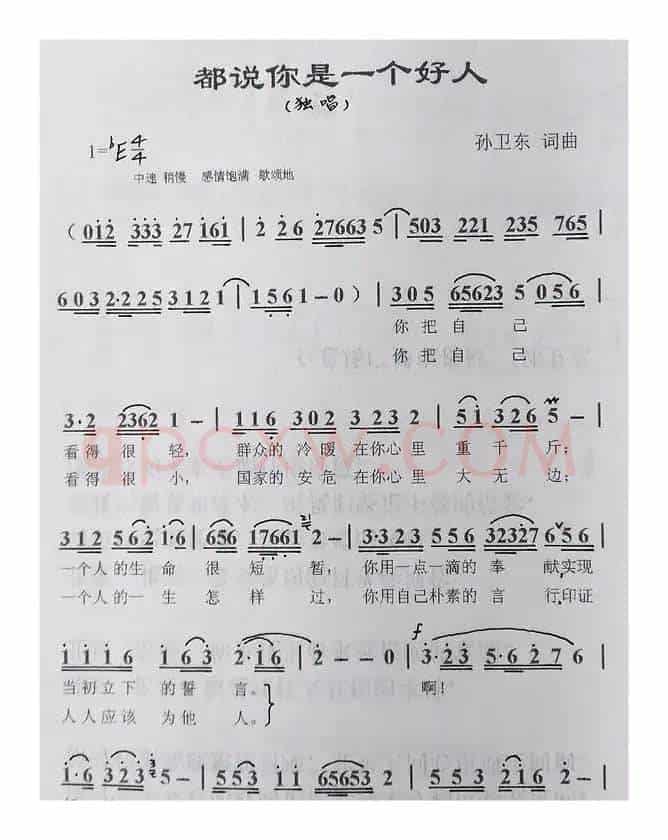 都说你是一个好人
（独唱）
1=♭E 4/4
孙卫东 词曲
中速 稍慢 感情饱满 歌颂地
（012 333 27 161 | 2 26 27663 5 | 503 221 235 765 |
603 2·225 3121 | 1561 -0） | 305 65623 5 056 |
你把自己
你把自己
3·2 2362 1 - | 116 302 3 232 | 51 326 5 - |
看得很轻， 群众的冷暖在你心里重千斤；
看得很小， 国家的安危在你心里大无边；
312 562 1·6 | 656 17661 2 - | 3·323 556 32327 656 |
一个人的生命很短暂， 你用一点一滴的奉献实现
一个人的一生怎样过， 你用自己朴素的言行印证
1116 163 2·16 | 2 - - 0 | 3·23 5·6 276 |
f
当初立下的誓言。
啊！
人人应该为他人。
1·6 323 5 - | 553 11 65653 2 | 553 523 216 2 - |
qpcxw.com